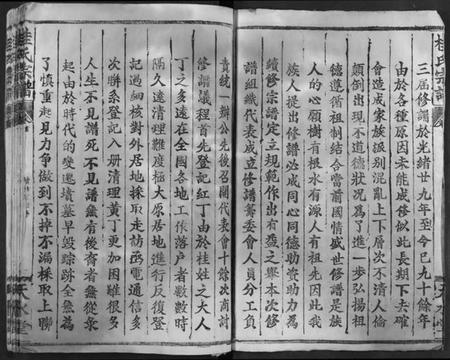 桂氏宗譜
三屆修譜於光緒廿九年至今已九十餘年
由於各種原因未能成修似此長期下去確
會造成家族派别混亂上下層次不清人倫
顛倒出現不道德狀況爲了進一步弘揚祖
德遵循祖制結合當前國情盛世修譜是族
人的心願樹有根水有源人有祖先因此我
族人提出修譜必成同心同德助資助力爲
續修宗譜定立規範作出有益之舉本次修
譜組織代表成立修譜籌委會人員分工負
責統一辦公先後召開代表會十餘次商討
修譜議程首先登記紅丁由於桂姓之大人
丁之多遠在全國各地工作落户者數數時
隔久遠清理難度極大原居地進行反復登
記過細核對外居地採取走訪函電通信多
次聯系登記入册清理黄丁更加困難很多
人生不見譜死不見譜雖有後裔者無從彙
起由於時代的變遷墳墓早毁踪跡全無爲
了慎重起見力争做到不掉不漏採取上聯
天水堂